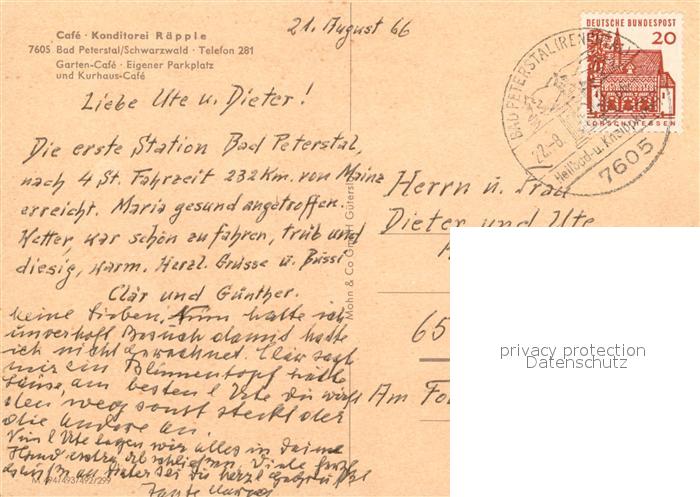 Café · Konditorei Räpple
7605 Bad Peterstal/Schwarzwald · Telefon 281
Garten-Café · Eigener Parkplatz
und Kurhaus-Café
21. August 66
Liebe Ute u. Dieter!
Die erste Station Bad Peterstal,
nach 4 St. Fahrzeit 232 Km. von Mainz
erreicht. Maria gesund angetroffen.
Wetter, war schön zu fahren, trüb und
diesig, warm. Herzl. Grüsse u. Bussi
Clär und Günther.
Nun hatte ich
unverhofft Besuch damit hatte
ich nicht gerechnet. Clär sagt
mir ein Blumentopf hätte
Läuse, am besten l Ute du wirfst
den weg sonst steckt der
die andere an.
Nun l Ute legen wir alles in deine
Viele
an Dieter sei du herzl
Tante
M 494/4937492/299
Mohn & Co GmbH Gütersl
DEUTSCHE BUNDESPOST
20
LORSCH/HESSEN
BAD PETERSTAL (RENCHTAL)
22.-8.
Heilbad-u. Kneippkurort
7605
Herrn u. Frau
Dieter und Ute
65
Am
privacy protection
Datenschutz